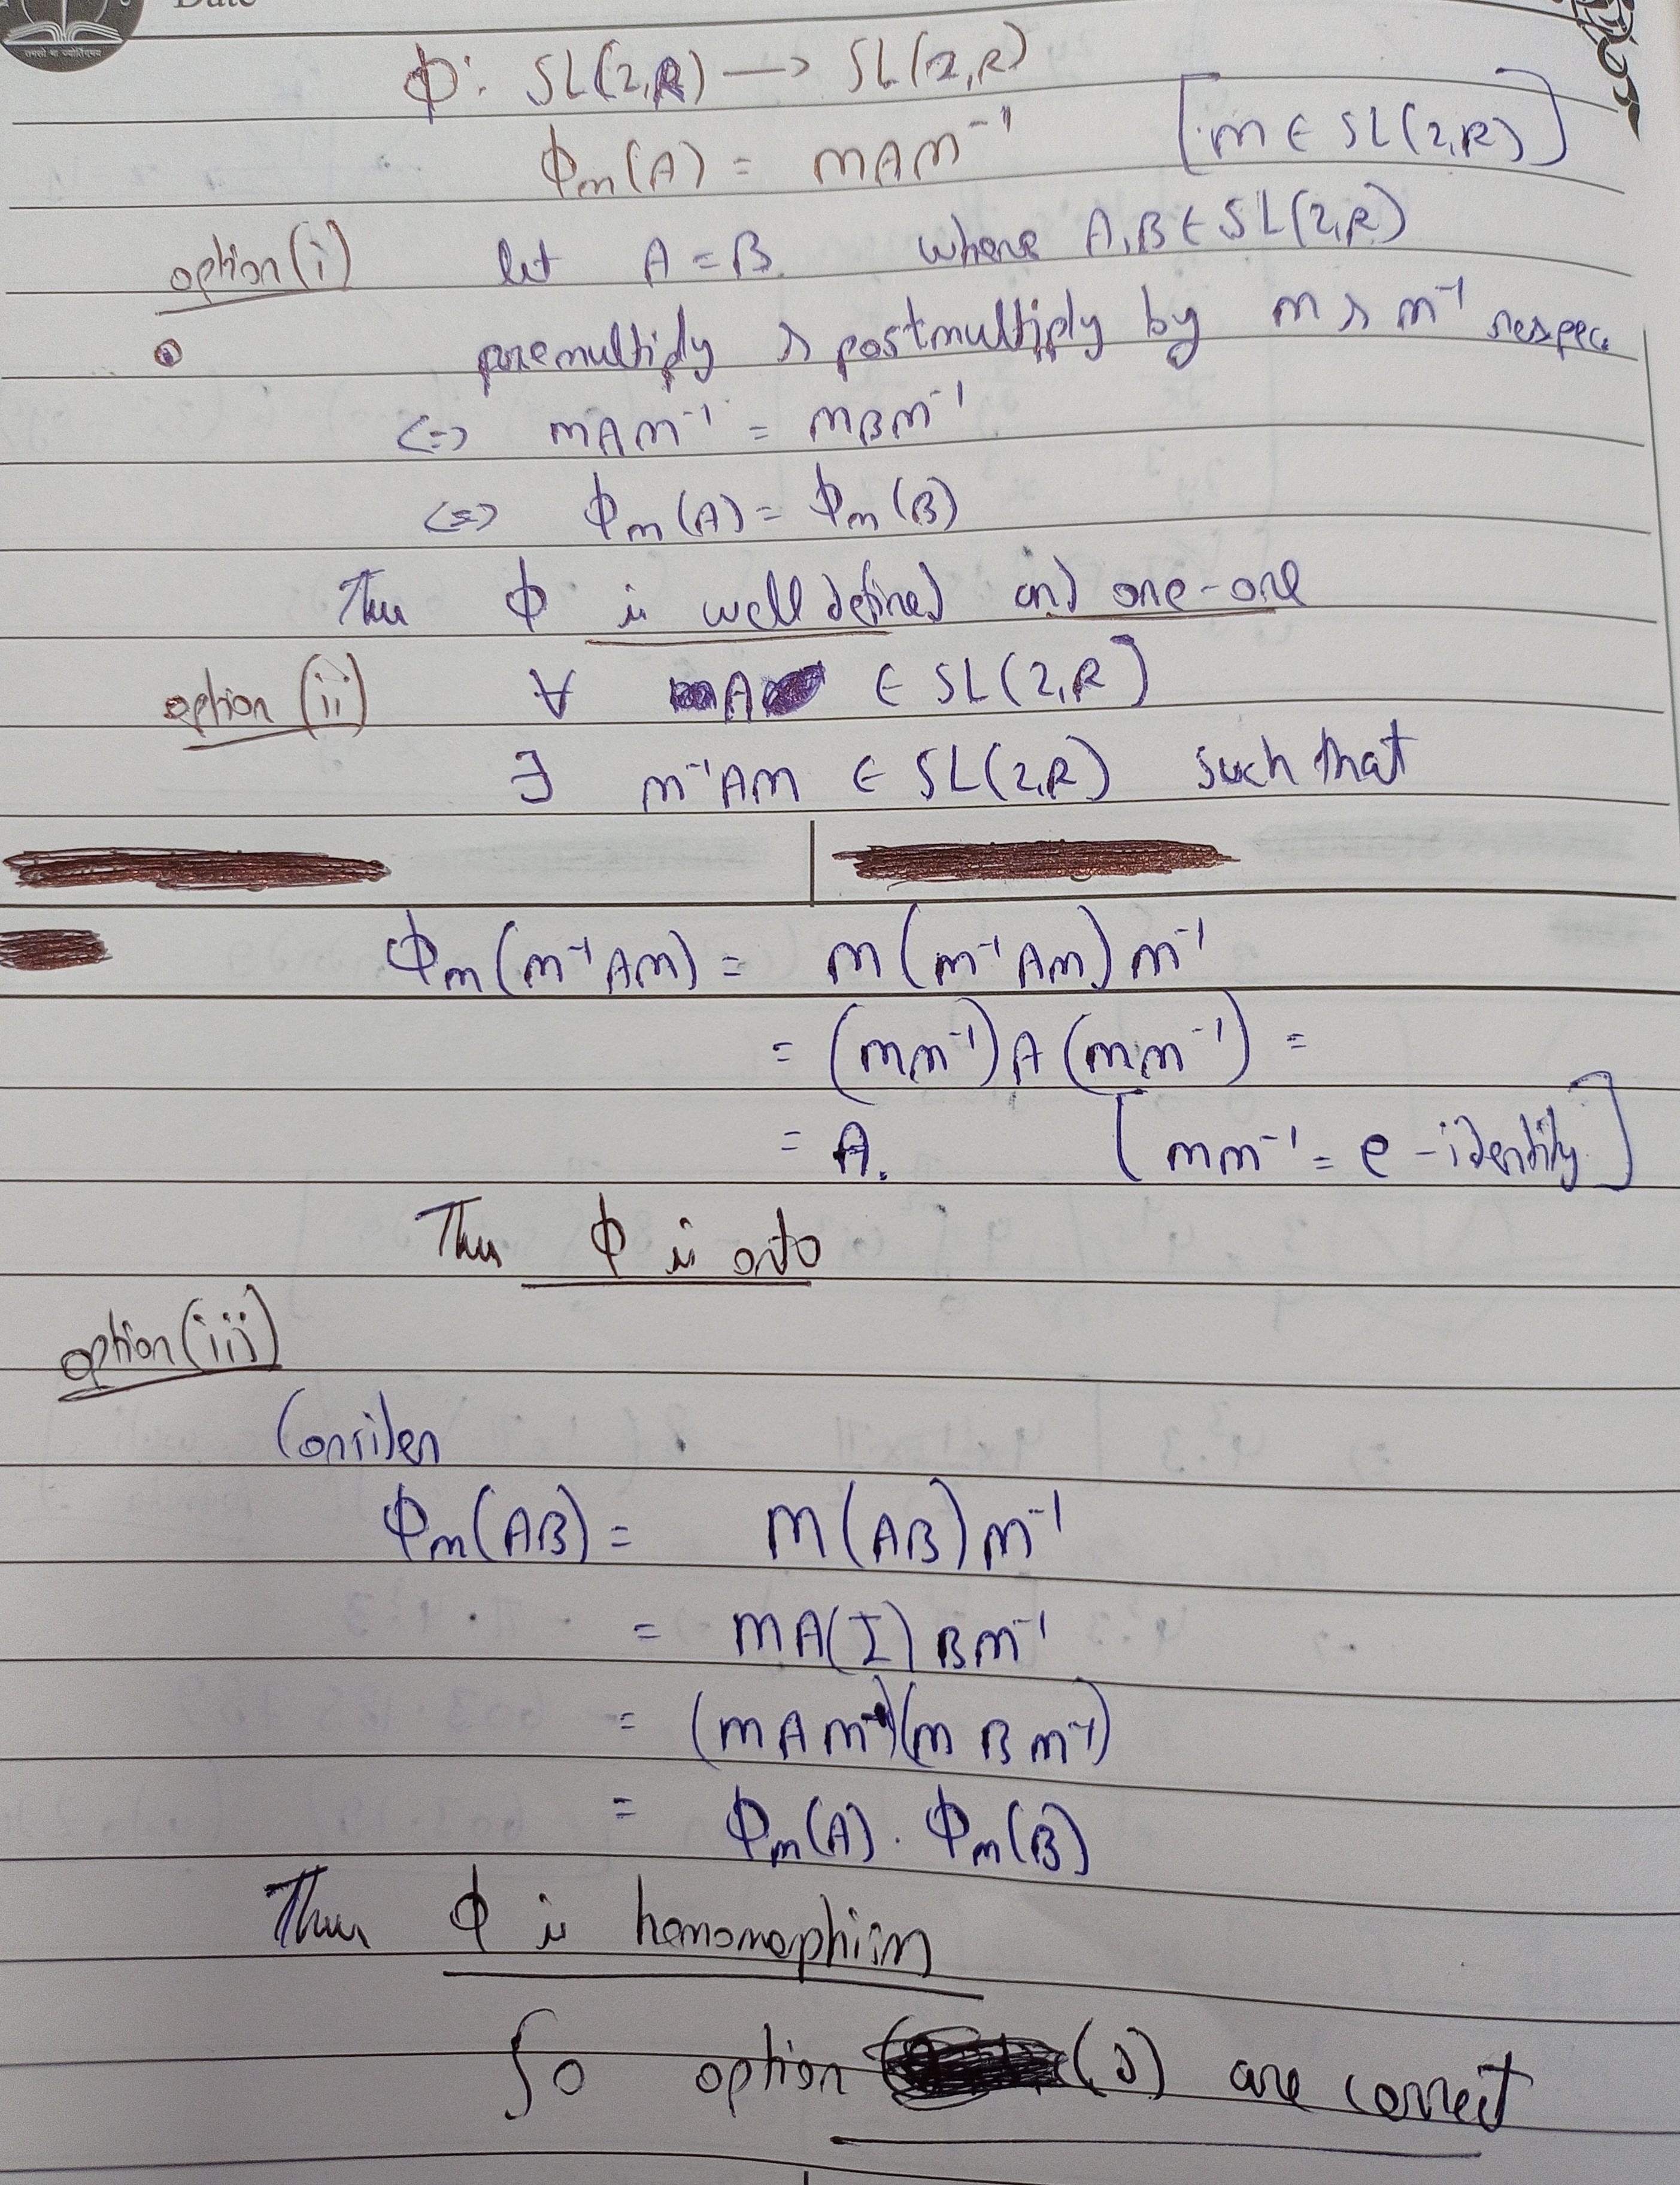 Date
तमसो मा ज्योतिर्गमय
Φ: SL(2,R) → SL(2,R)
Φm(A) = mAm⁻¹ [m ∈ SL(2,R)]
option(i) let A = B where A,B ∈ SL(2,R)
premultiply & postmultiply by m & m⁻¹ respec.
<=> mAm⁻¹ = mBm⁻¹
<=> Φm(A) = Φm(B)
Thus Φ is well defined and one-one
option (ii) ∀ A ∈ SL(2,R)
∃ m⁻¹Am ∈ SL(2,R) such that
Φm(m⁻¹Am) = m(m⁻¹Am)m⁻¹
= (mm⁻¹)A(mm⁻¹) =
= A. [mm⁻¹ = e - identity]
Thus Φ is onto
option(iii)
Consider
Φm(AB) = m(AB)m⁻¹
= mA(I)Bm⁻¹
= (mAm⁻¹)(mBm⁻¹)
= Φm(A). Φm(B)
Thus Φ is homomorphism
So option are correct